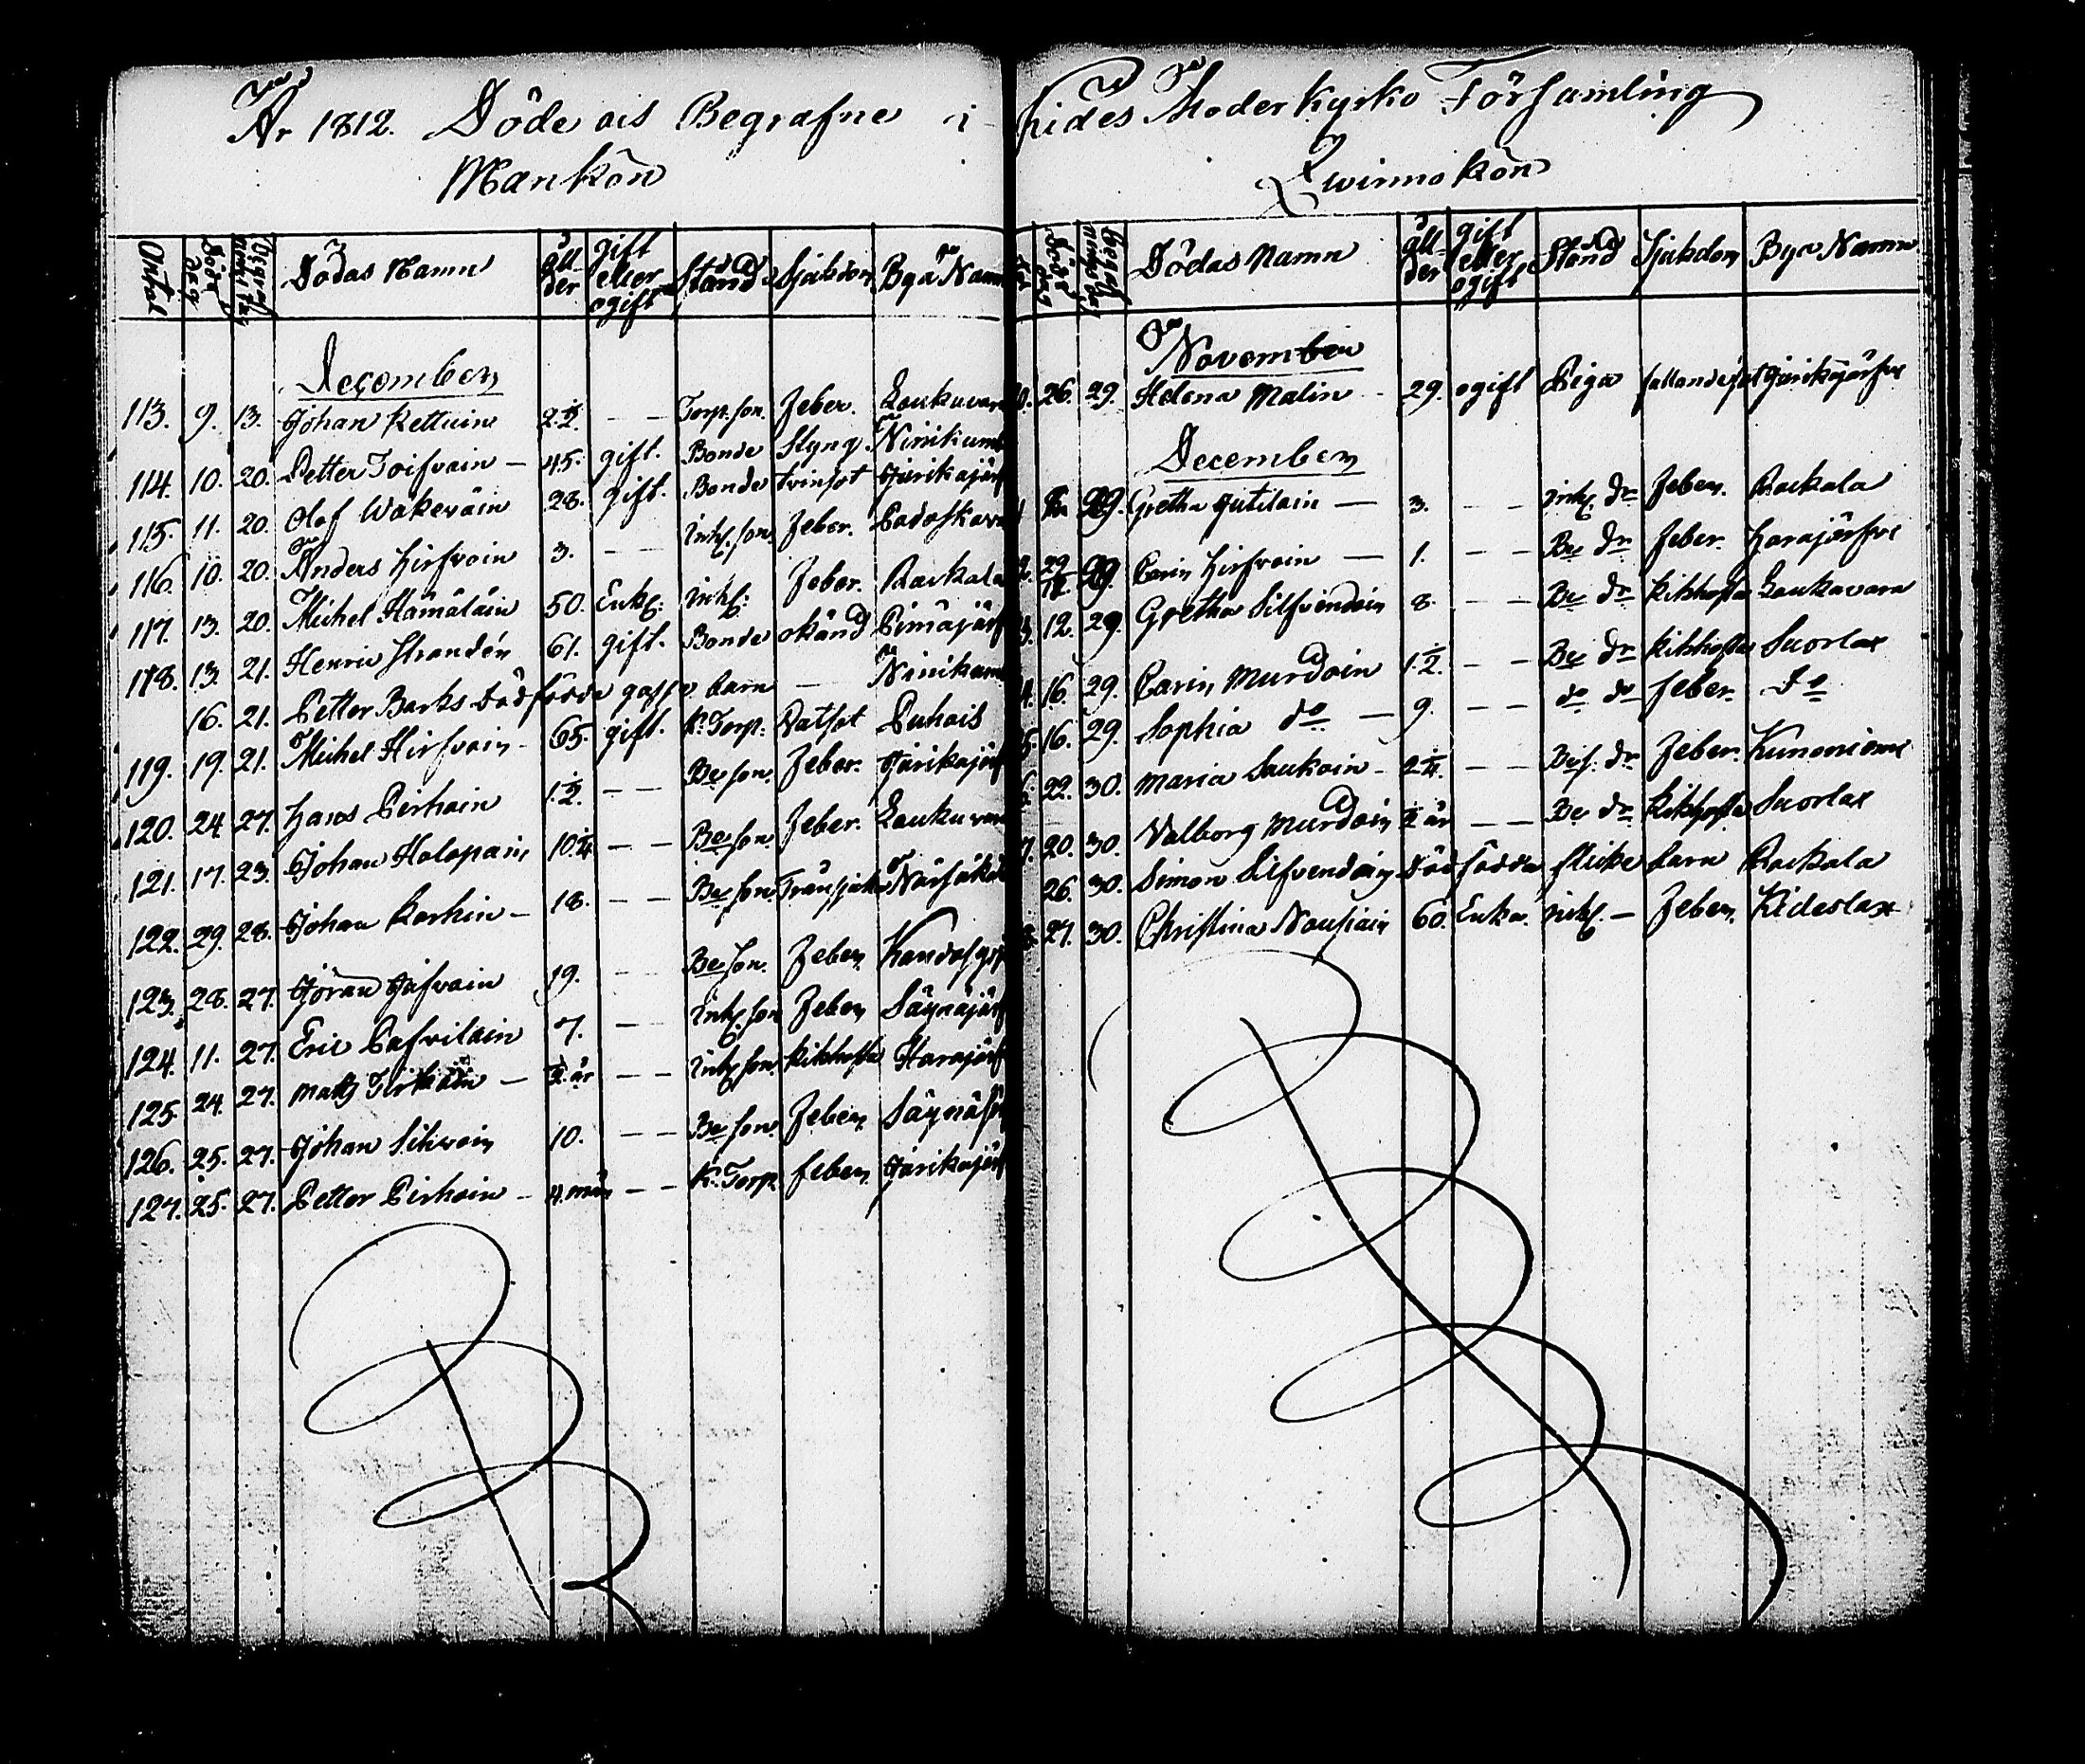 År 1812. Döde ock Begrafne i
Mankön
Antal Döde Dag Begrafn. Dödas Namn åll der gift eller ogift Stånd Sjukdom Bya Namn
December
113. 9. 13. Johan Kettuin 2 1/2. — — Torp. son. Feber. Loukuvara
114. 10. 20. Petter Toifvain — 45. gift. Bonde Styng Ninikum
115. 11. 20. Olof Wäkeväin 28. gift. Bonde tvinsot Jurikajärf
116. 10. 20. Anders Hirfvoin 3. — — inh. son Feber. Podoskava
117. 13. 20. Michel Hämäläin 50. Enkl: inh: Feber. Rackala
118. 13. 21. Henric Strandén 61. gift. Bonde okänd Pimäjärf
16. 21. Petter Barks Dödfödde gosse barn — Ninikum
119. 19. 21. Michel Hirfvoin — 65. gift. K. Torp: Votsot Puhois
120. 24. 27. Hans Pirhoin 1 1/2. — — Be son. Feber. Jurikajärf
121. 17. 23. Johan Holopain 10 1/4 — — Be son Feber. Loukuvara
122. 29. 28. Johan Karhin — 18. — — Be son Trånsjuka Närsäkä
123. 28. 27. Göran Jufvain 19. — — Be son. Feber
124. 11. 27. Eric Pafvilain 7. — — inh. son Feber Säynäjärf
125. 24. 27. Matts Tirkoin — 1/2 år — — inh. son. Kikhosta Harajärf
126. 25. 27. Johan Sihvoin 10. — — Be son. Feber. Säynäjä
127. 25. 27. Petter Pirhoin — 4. mån — — K. Torp. feber. Jurikajärf
Kides Moderkyrko Församling
Qwinnokön
Död Dag Begraf Dödas Namn åll der gift eller ogift Stånd Sjukdom Bya Namn
November
26. 29. Helena Malin — 29. ogift Piga fallandesot Jurikajärfvi
December
29. Gretha Jutilain — 3. — — inh. dr Feber. Rackala
29. Carin Hirfvoin — 1. — — Be dr Feber. Harajärfvi
12. 29. Gretha Silfvendoin 8. — — Be dr Kikhosta Loukavara
16. 29. Carin Murdoin 1 1/2 — — Be dr Kikhosta Suorlax
16. 29. Sophia do — 9. — — do do feber. Do
22. 30. Maria Saukoin — 2 1/4. — — dr Feber. Kunonieme
20. 30. Valborg Murdoin 1/2 år — — Be dr Kikhosta Suorlax
26. 30. Simon Silfvendoins Död födda flicke barn Rackala
27. 30. Christina Nousiain 60. Enka. inh. — Feber. Kideslax